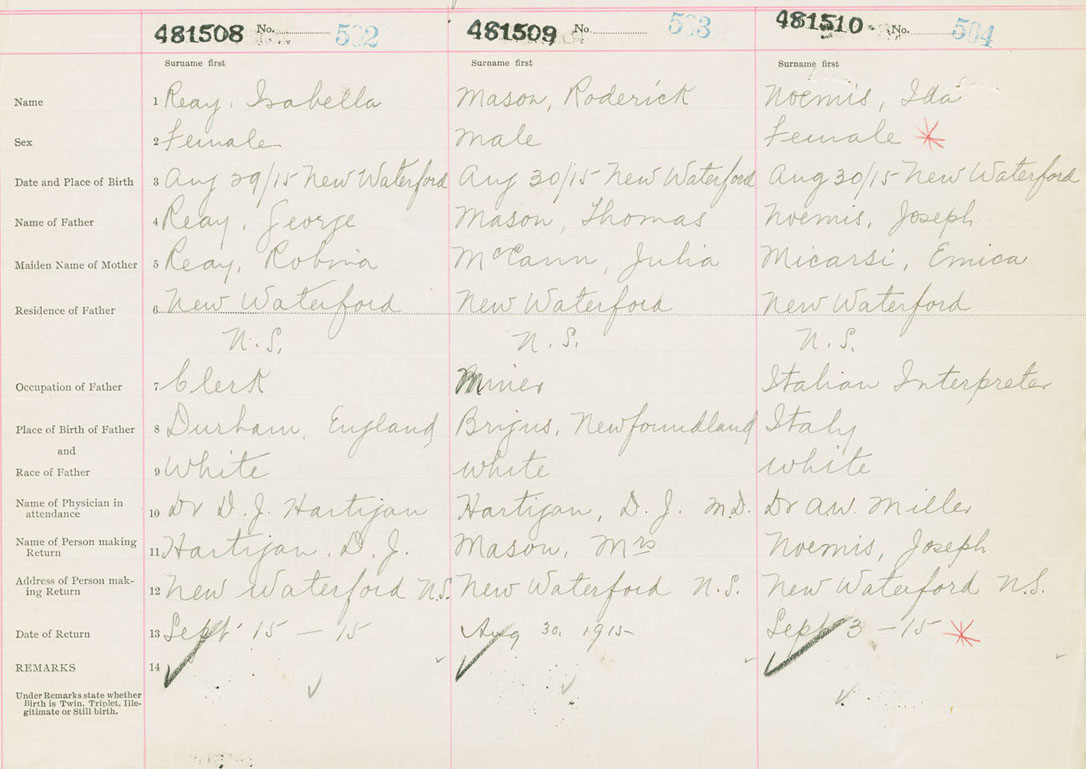 481508 No. 502 481509 No. 503 481510 No. 504
Surname first Surname first Surname first
Name 1 Reay, Isabella Mason, Roderick Noemis, Ida
Sex 2 Female Male Female
Date and Place of Birth 3 Aug 29/15 New Waterford Aug 30/15 New Waterford Aug 30/15 New Waterford
Name of Father 4 Reay, George Mason, Thomas Noemis, Joseph
Maiden Name of Mother 5 Reay, Robina McCann, Julia Micarsi, Emica
Residence of Father 6 New Waterford New Waterford New Waterford
N.S. N.S. N.S.
Occupation of Father 7 Clerk Miner Italian Interpreter
Place of Birth of Father 8 Durham, England Brigus, Newfoundland Italy
and
Race of Father 9 White White White
Name of Physician in
attendance 10 Dr D. J. Hartigan Hartigan, D. J. M.D. Dr A.W. Miller
Name of Person making
Return 11 Hartigan, D. J. Mason, Mrs Noemis, Joseph
Address of Person mak-
ing Return 12 New Waterford N.S. New Waterford N.S. New Waterford N.S.
Date of Return 13 Sept 15 – 15 Aug 30. 1915 Sept 3 – 15
REMARKS 14
Under Remarks state whether
Birth is Twin, Triplet, Ille-
gitimate or Still birth.